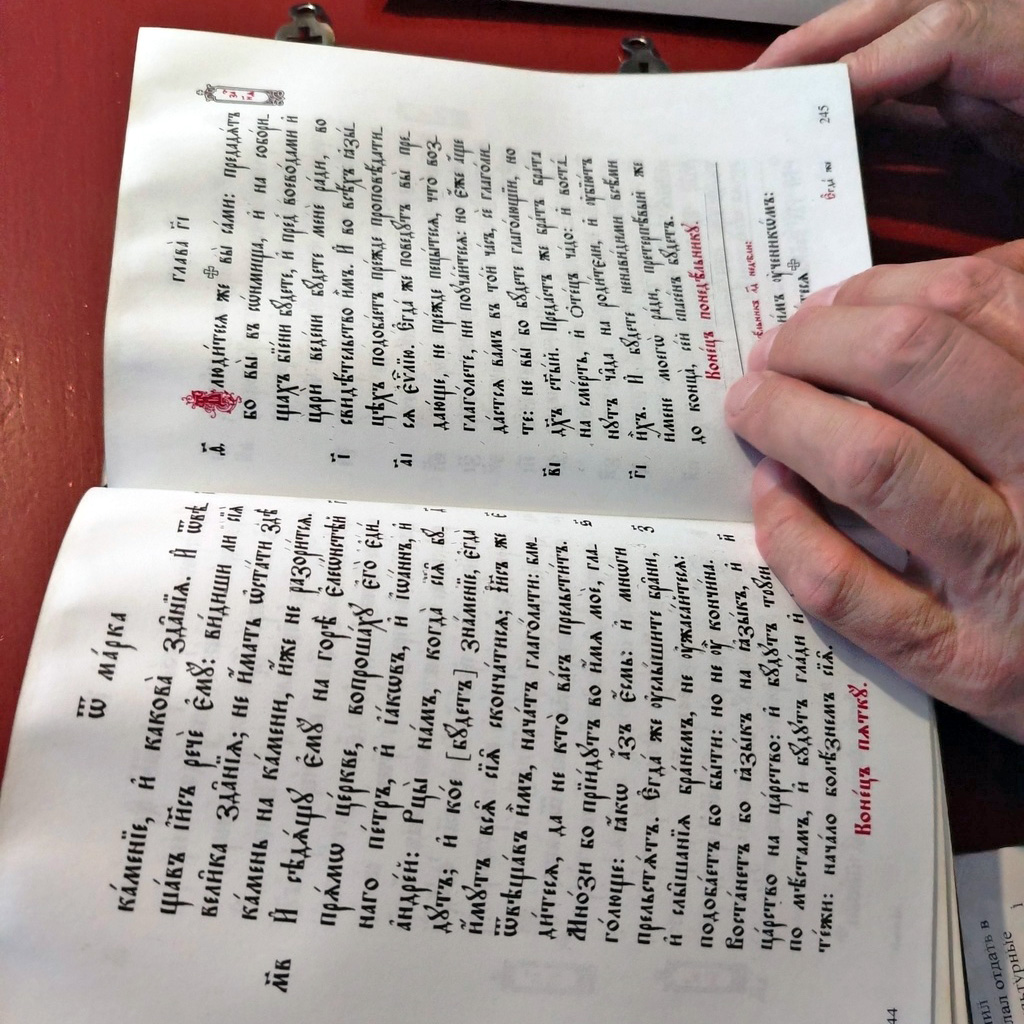 Ѿ ма́рка
ка́менїе, и҆ какова̀ зда̑нїѧ. И҆ ѿвѣ
ща́въ і҆и҃съ речѐ є҆мꙋ̀: ви́диши ли сїѧ̑
вели̑каѧ зда̑нїѧ; не и҆́мать ѡ҆ста́ти здѣ̀
ка́мень на ка́мени, и҆́же не разори́тсѧ.
м҃в
И҆ сѣдѧ́щꙋ є҆мꙋ̀ на горѣ̀ є҆леѡ́нстѣй
прѧ́мѡ це́ркве, вопроша́хꙋ є҆го̀ є҆ди́
наго пе́тръ, и҆ і҆а́кѡвъ, и҆ і҆ѡа́ннъ, и҆
а҆ндре́й: Рцы̀ на́мъ, когда̀ сїѧ̑ бꙋ́
дꙋтъ; и҆ ко́е [бꙋ́детъ] зна́менїе, є҆гда̀
и҆́мꙋтъ всѧ̑ сїѧ̑ сконча́тисѧ; І҆и҃съ же
ѿвѣща́въ и҆̀мъ, нача́тъ глаго́лати: блю
ди́тесѧ, да не кто̀ ва́съ прельсти́тъ.
Мно́зи бо прїи́дꙋтъ во и҆́мѧ моѐ, гла
го́люще: ꙗ҆́кѡ а҆́зъ є҆́смь: и҆ мно́ги
прельстѧ́тъ. Є҆гда́ же ᲂу҆слы́шите бра̑ни,
и҆ слы̑шанїѧ бра́немъ, не ᲂу҆жаса́йтесѧ:
подоба́етъ бо бы́ти: но не ᲂу҆̀ кончи́на.
Воста́нетъ бо ꙗ҆зы́къ на ꙗ҆зы́къ, и҆
ца́рство на ца́рство: и҆ бꙋ́дꙋтъ трꙋ́си
по мѣстѡ́мъ, и҆ бꙋ́дꙋтъ гла́ди и҆
те́жи: нача́ло болѣ́знемъ сїѧ̑.
Коне́цъ пѧткꙋ̀.
44
глава̀ г҃і
за
ч҃а
Блюди́тесѧ же вы̀ са́ми: предадѧ́тъ
бо вы̀ въ сѡ́нмища, и҆ на собо́ри
щахъ бїе́ни бꙋ́дете, и҆ пред̾ воево́дами и҆
цари̑ веде́ни бꙋ́дете менє̀ ра́ди, во
свидѣ́тельство и҆̀мъ. И҆ во всѣ́хъ ꙗ҆зы́
цѣхъ подоба́етъ пре́жде проповѣ́датисѧ
є҆ѵⷢ҇лїю. Є҆гда́ же поведꙋ́тъ вы̀ пре
даю́ще, не пре́жде пецы́тесѧ, что̀ воз
глаго́лете, ни поꙋча́йтесѧ: но є҆́же а҆́ще
да́стсѧ ва́мъ въ то́й ча́съ, сѐ глаго́ли
те: не вы́ бо бꙋ́дете глаго́лющїи, но
дх҃ъ ст҃ы́й. Преда́стъ же бра́тъ бра́та
на сме́рть, и҆ ѻ҆те́цъ ча́до: и҆ воста́
нꙋтъ ча̑да на роди́тели, и҆ ᲂу҆бїю́тъ
и҆̀хъ. И҆ бꙋ́дете ненави́дими всѣ́ми
и҆́мене моегѡ̀ ра́ди, претерпѣ́вый же
до конца̀, се́й спасе́нъ бꙋ́детъ.
Коне́цъ понедѣ́льникꙋ.
ᲂу҆чн҃кѡ́мъ:
Є҆гда́ же
245
лал отдать в